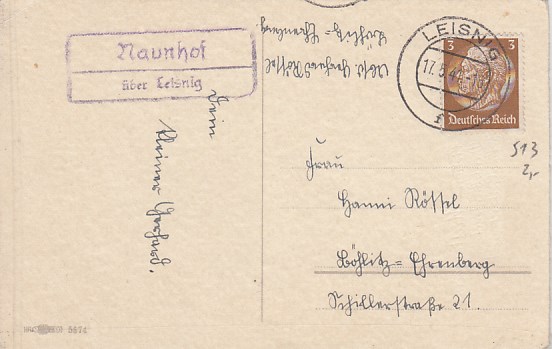 Naunhof
über Leisnig
LEISNIG
17.5.4
3 3
Deutsches Reich
Abs. Gerhard Rössel
Böhlitz-Ehrenberg
Dein
kleiner Gerhard.
513
2,-
Frau
Hanni Rössel
Böhlitz-Ehrenberg
Schillerstraße 21.
5574